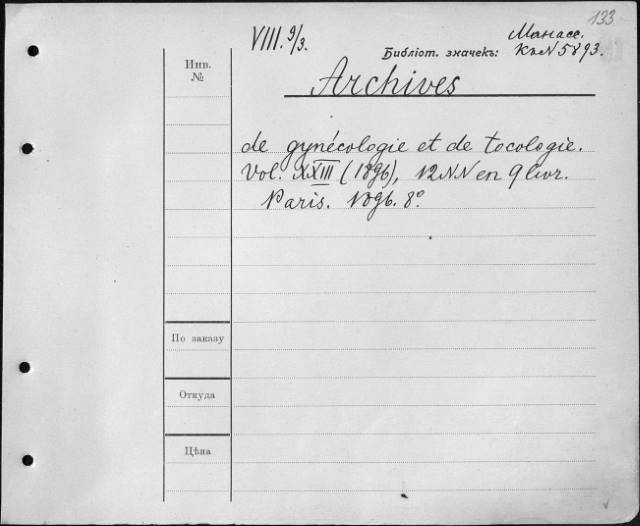 133
VIII. 9/3.
Манасс.
Библіот. значекъ: КъN5893.
Инв.
№
Archives
de gynécologie et de tocologie.
Vol. XXIII (1896), 12NN en 9 livr.
Paris. 1896. 8°
По заказу
Откуда
Цѣна